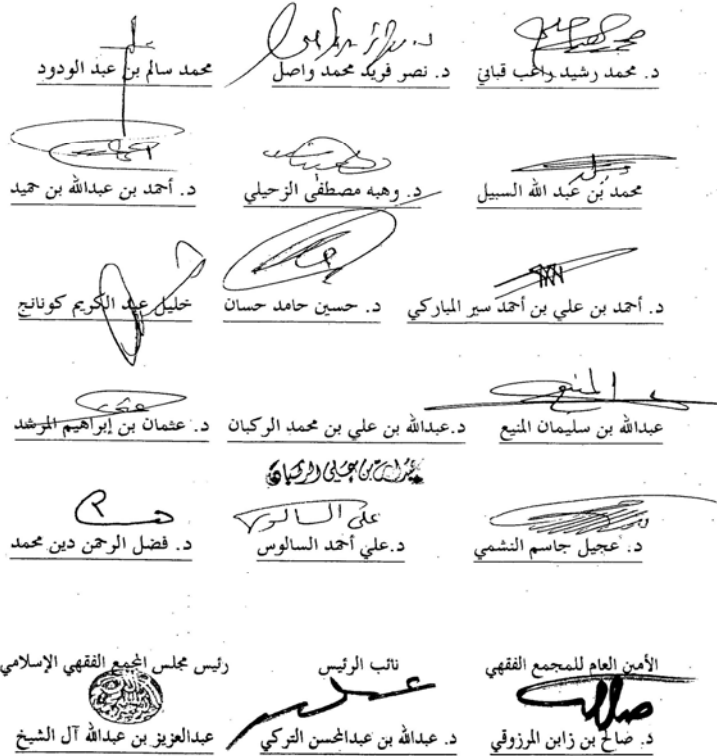 د. محمد رشيد راغب قباني د. نصر فريد محمد واصل محمد سالم بن عبد الودود
محمد بن عبد الله السبيل د. وهبه مصطفى الزحيلي د. أحمد بن عبدالله بن حميد
د. أحمد بن علي بن أحمد سير المباركي د. حسين حامد حسان خليل عبد الكريم كونانج
عبدالله بن سليمان المنيع د.عبدالله بن علي بن محمد الركبان د. عثمان بن إبراهيم المرشد
د. عجيل جاسم النشمي د.علي أحمد السالوس د. فضل الرحمن دين محمد
الأمين العام للمجمع الفقهي نائب الرئيس رئيس مجلس المجمع الفقهي الإسلامي
د. صالح بن زابن المرزوقي د. عبدالله بن عبدالمحسن التركي عبدالعزيز بن عبدالله آل الشيخ